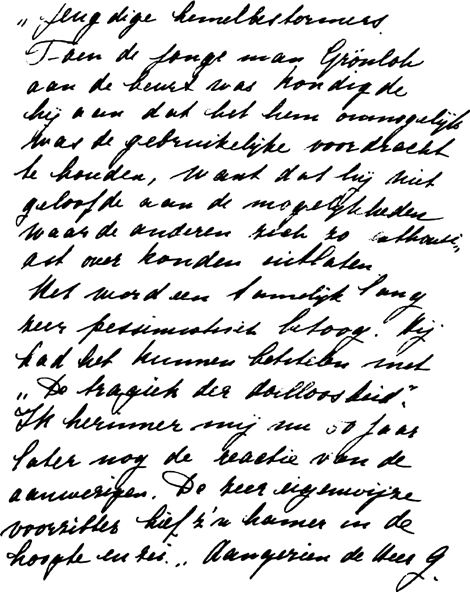 „Jeugdige hemelbestormers
Toen de jonge man Grönloh
aan de beurt was kondigde
hij aan dat het hem onmogelijk
was de gebruikelijke voordracht
te houden, want dat hij niet
geloofde aan de mogelijkheden
waar de anderen zich zo enthousi„
ast over konden uitlaten
Het werd een tamelijk lang
zeer pessimistisch betoog. Hij
had het kunnen betitelen met
„De tragiek der doelloosheid".
Ik herinner mij nu 50 jaar
later nog de reactie van de
aanwezigen. De zeer eigenwijze
voorzitter hief z'n hamer in de
hoogte en zei „Aangezien de Heer G.